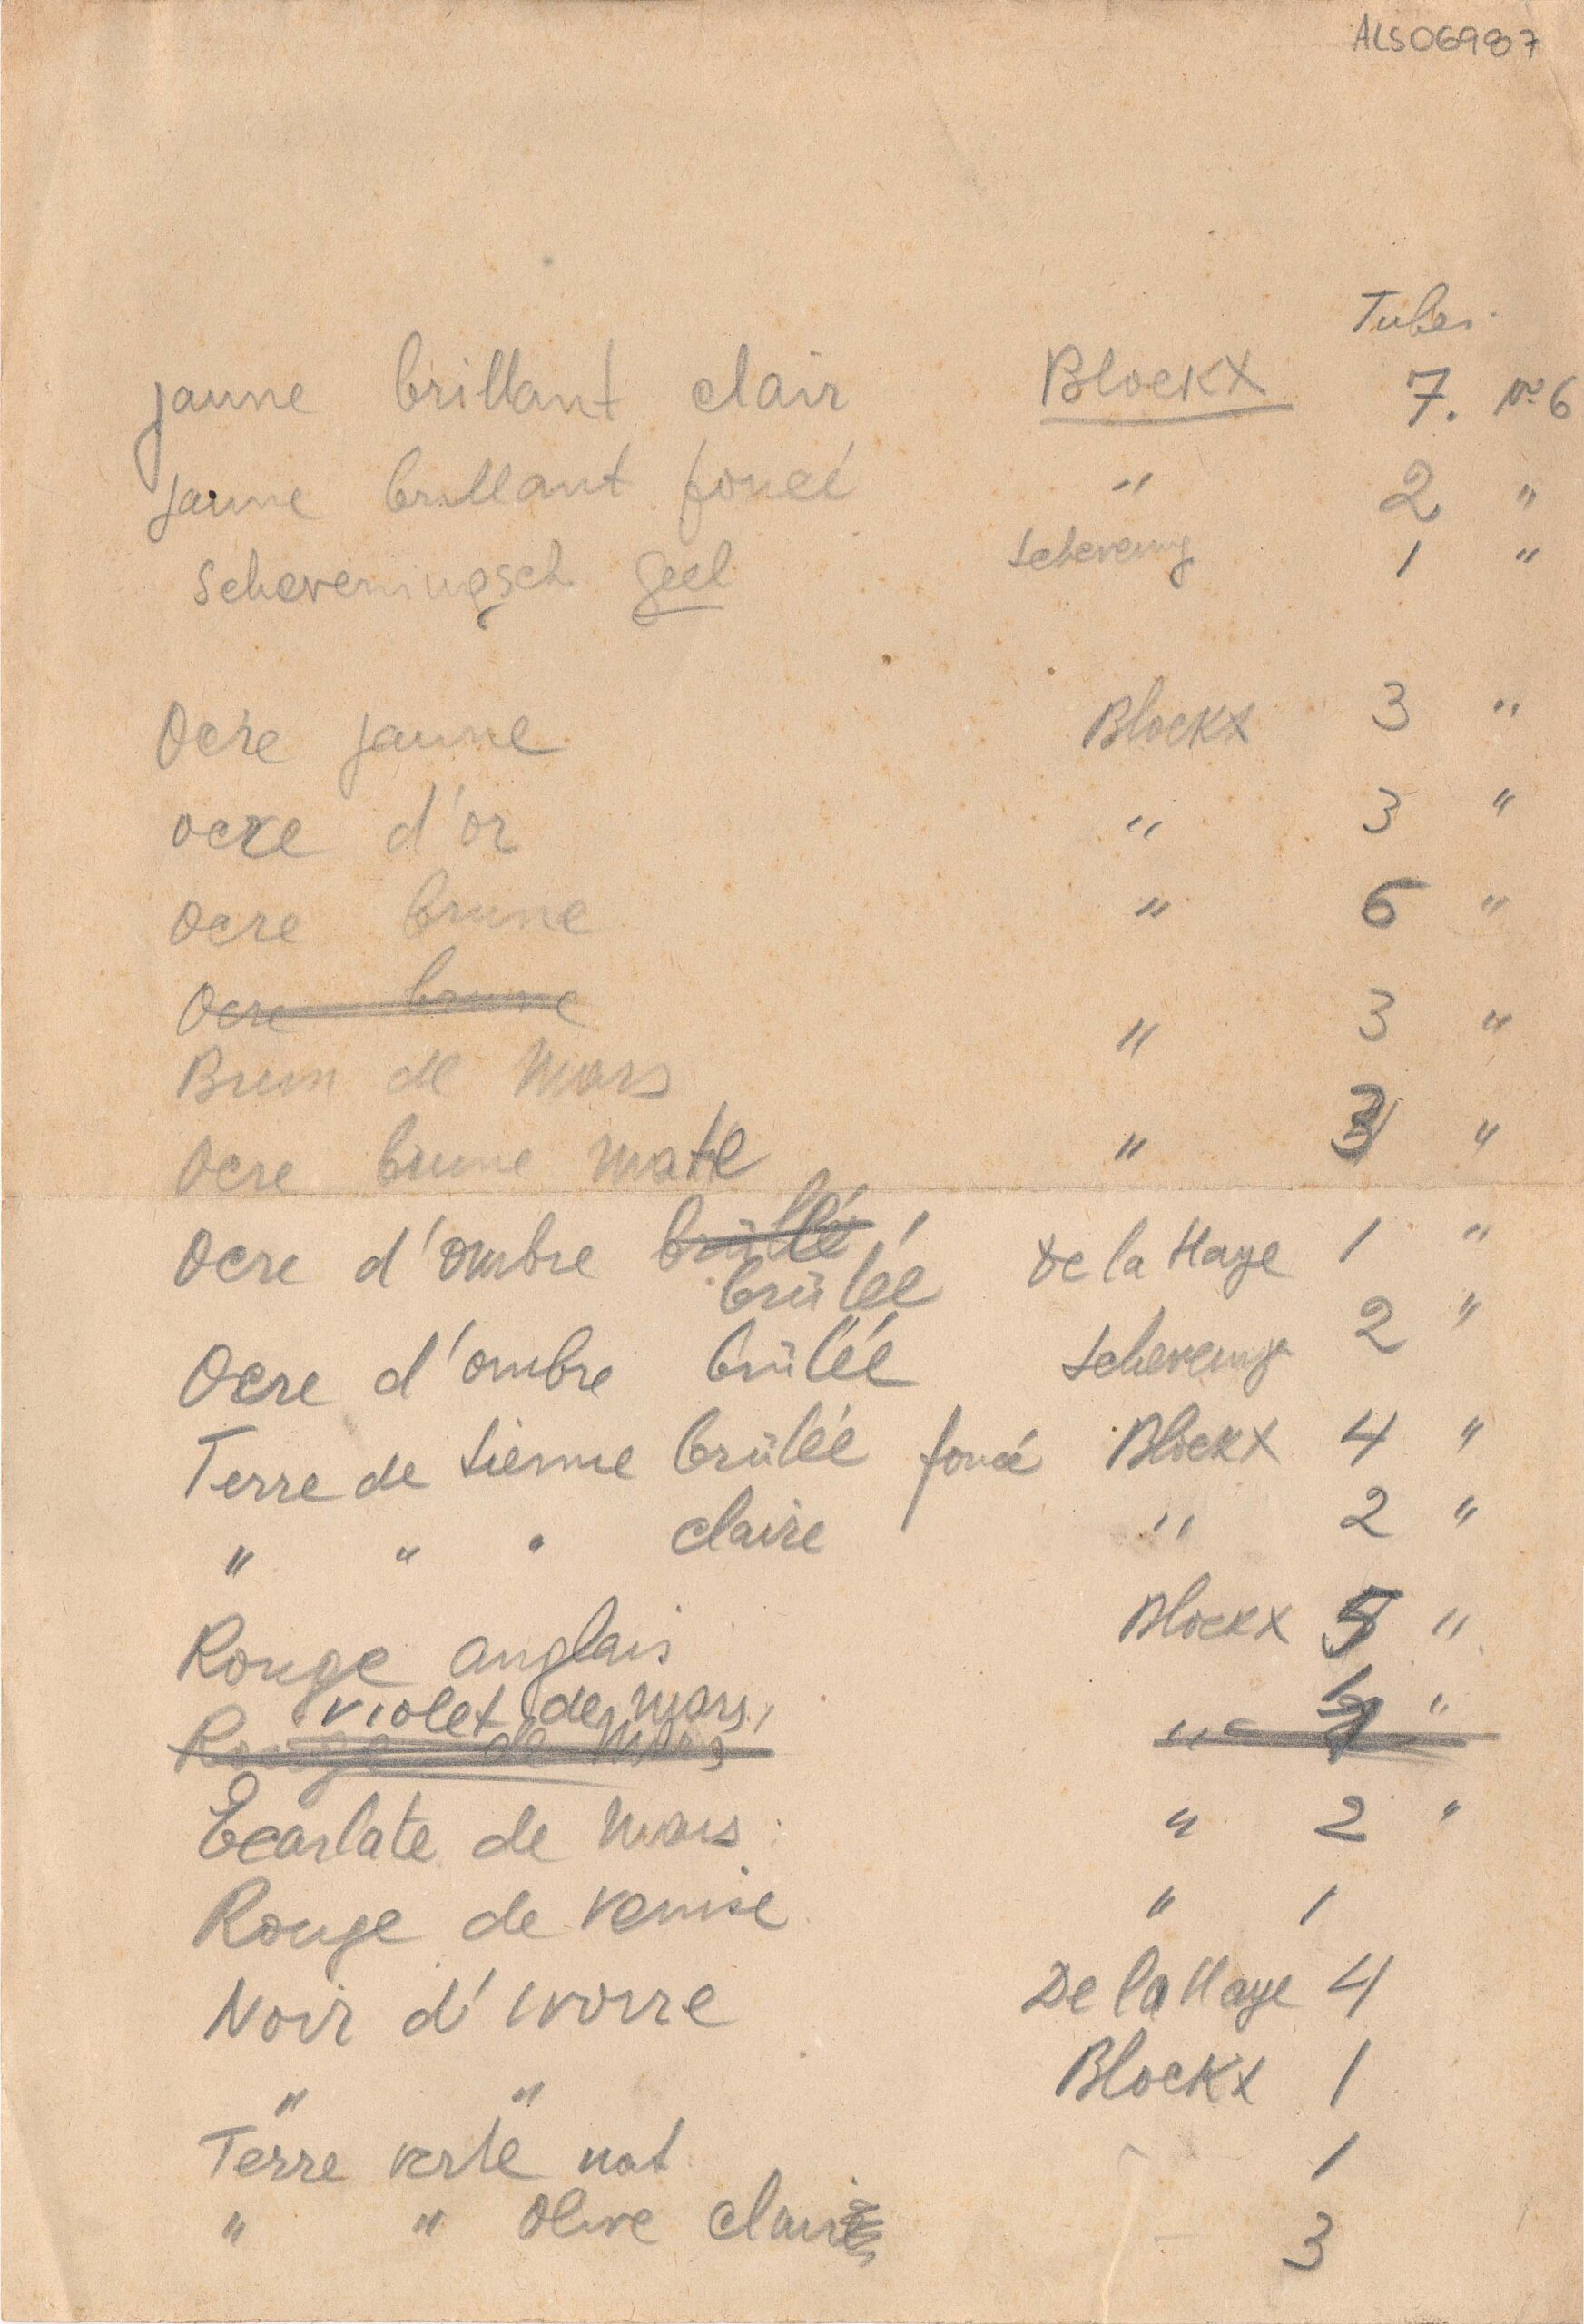 ALS06987
Tubes
jaune brillant clair Blockx 7. No 6
jaune brillant foncé " 2 "
Scheveningsch Geel Schevening 1 "
Ocre jaune Blockx 3 "
ocre d'or " 3 "
ocre brune " 6 "
Ocre brune
Brun de Mars " 3 "
Ocre brune mate " 3 "
Ocre d'ombre brûlé De la Haye 1 "
brûlée
Ocre d'ombre brûlée Schevening 2 "
Terre de Sienne brûlée foncé Blockx 4 "
" " " claire " 2 "
Rouge anglais Blockx 5 "
violet de Mars
Rouge de Mars " "
Ecarlate de Mars " 2 "
Rouge de Venise " 1
Noir d'ivoire De la Haye 4
" " Blockx 1
Terre verte nat 1
" " Olive clair 3